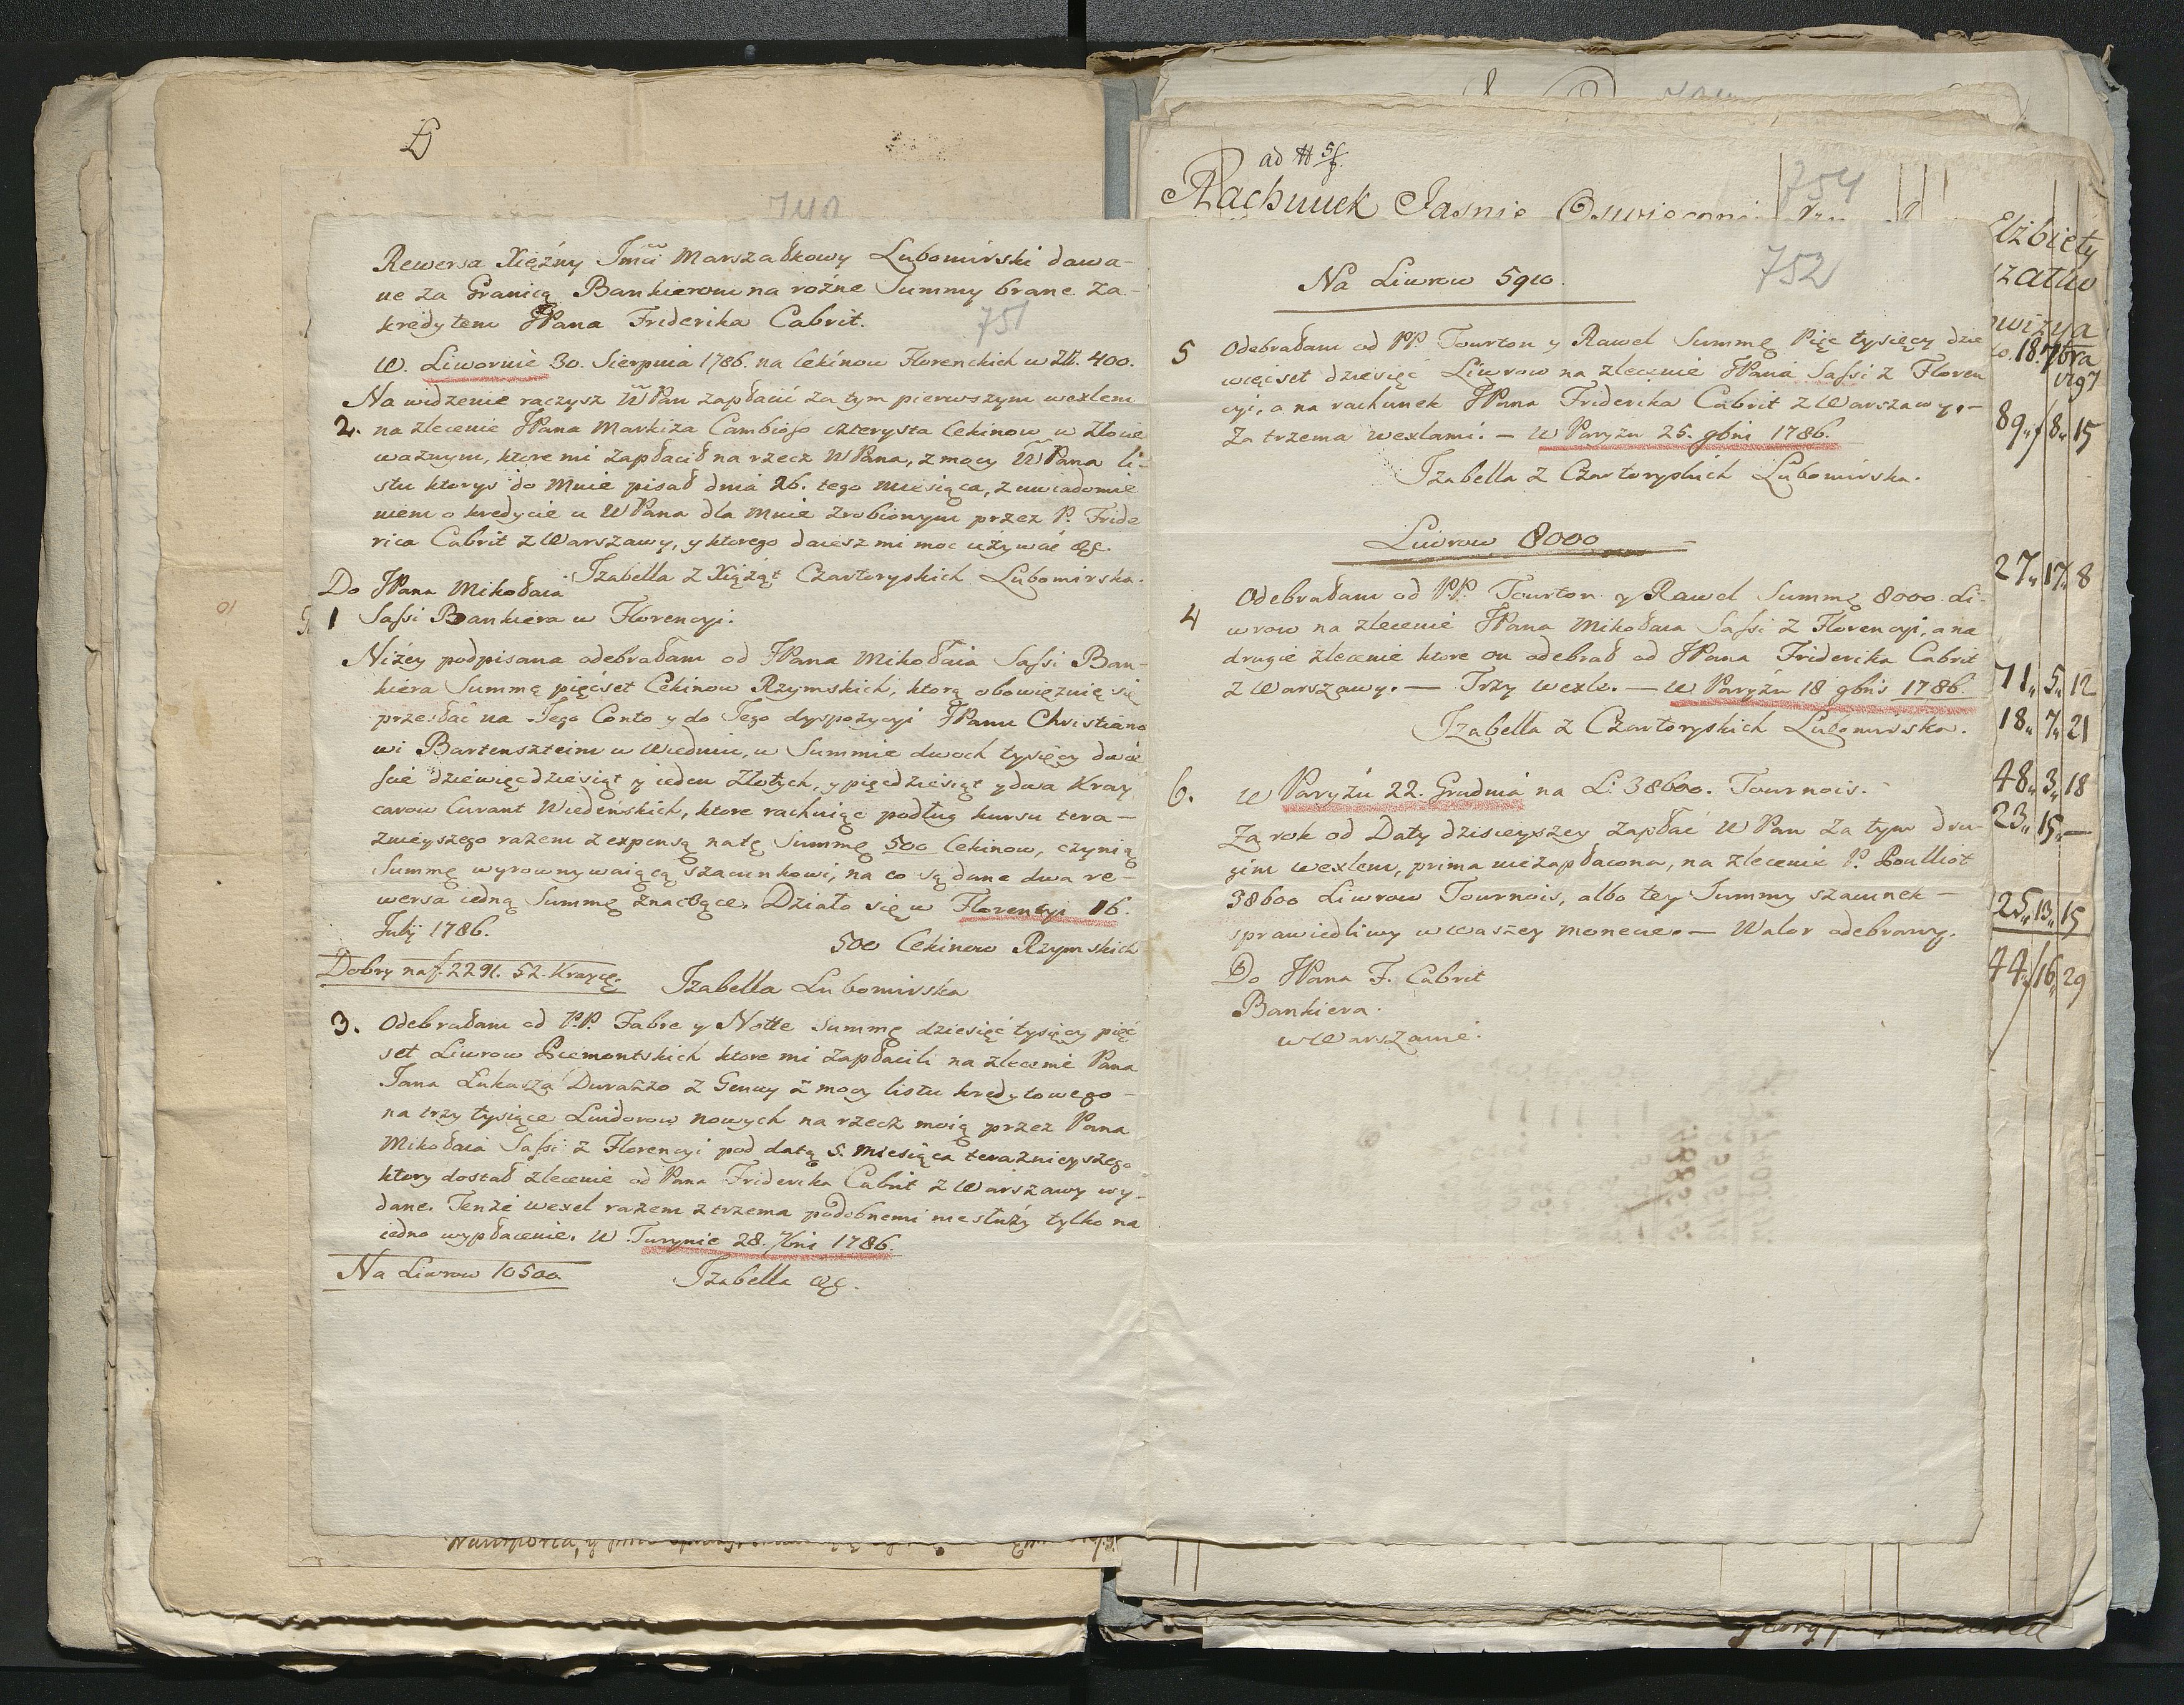 Rewersa Xiężny Jmci Marszałkowy Lubomirski dawa-
ne za Granicą Bankierom na rożne Summy brane za-
kredytem JPana Friderika Cabrit.
751
W. Liwornie 30. Sierpnia 1786. na Cekinow Florenckich w Zł. 400.
Na widzenie raczysz WPan zapłacić za tym pierwszym wexlem
2. na zlecenie JPana Markiza Cambioso czterysta Cekinow w złocie
ważnym, ktore mi zapłacił na rzecz WPana, z mocy WPana li-
stu ktoryś do mnie pisał dnia 26. tego miesiąca, z uwiadomie
niem o kredycie u WPana dla mnie zrobionym przez P. Fride
rica Cabrit z Warszawy, y ktorego daiesz mi moc używać &c.
Izabella z Xiążąt Czartoryskich Lubomirska.
Do JPana Mikołaia
1 Sassi Bankiera w Florencyi.
Niżey podpisana odebrałam od JPana Mikołaia Sassi Ban-
kiera Summę pięćset Cekinow Rzymskich, ktorą obowięzuię się
przesłać na Jego Conto y do Jego dyspozycyi JPanu Christiano
wi Bartenszteim w Wiedniu, w Summie dwoch tysięcy dwie
ście dziewięćdziesiąt y ieden złotych, y pięćdziesiąt y dwa Kray
carow Curant Wiedeńskich, ktore rachuiąc podług kursu tera-
znieyszego razem z expensą natę Summę 500 Cekinow, czynią
Summę wyrownywaiącą szacunkowi, na co są dane dwa re-
wersa iedną Summę znaczące. Działo się w Florencyi 16.
Julij 1786.
500 Cekinow Rzymskich
Dobry na f. 2291. 52. Kraycę.
Izabella Lubomirska
3. Odebrałam od P.P. Fabre y Notte Summę dziesięć tysięcy pięć
set Liwrow Piemontskich ktore mi zapłacili na zlecenie Pana
Jana Łukasza Durazzo z Genuy z mocy listu kredytowego -
na trzy tysiące Luidorow nowych na rzecz moią przez Pana
Mikołaia Sassi z Florencyi pod datą 5. miesiąca teraznieyszego
ktory dostał zlecenie od Pana Friderika Cabrit z Warszawy wy-
dane. Tenże wexel razem z trzema podobnemi niesłuży tylko na
iedno wypłacenie. W Turynie 28. 7bris 1786.
Na Liwrow 10500
Izabella &c.
ad # 5/f.
754
Rachunek Jaśnie Oswieconei
Elżbiety
18. 7bra
89 8 15
27 17 8
71 5 12
18 7 21
48 3 18
23 15 —
25 13 15
44 16 29
752
Na Liwrow 5910.
5 Odebrałam od PP. Tourton y Rawel Summę Pięć tysięcy dzie
więćset dziesięć Liwrow na zlecenie JPana Sassi z Floren
cyi, a na rachunek JPana Friderika Cabrit z Warszawy.-
Za trzema wexlami. - W Paryżu 25. 9bris 1786.
Izabella z Czartoryskich Lubomirska.
Liwrow 8000
4 Odebrałam od P.P. Tourton y Rawel Summę 8000. Li-
wrow na zlecenie JPana Mikołaia Sassi z Florencyi, a na
drugie zlecenie ktore on odebrał od JPana Friderika Cabrit
z Warszawy. — Trzy wexle. — W Paryżu 18 9bris 1786.
Izabella z Czartoryskich Lubomirska.
6. W Paryżu 22. Grudnia na L. 38600. Tournois.
Za rok od Daty dzisieyszey zapłać WPan za tym dru-
gim wexlem, prima niezapłacona, na zlecenie P. Poulliot
38600 Liwrow Tournois, albo tey Summy szacunek -
sprawiedliwy w waszey monecie. - Walor odebrany.
Do JPana F. Cabrit
Bankiera.
w Warszawie.